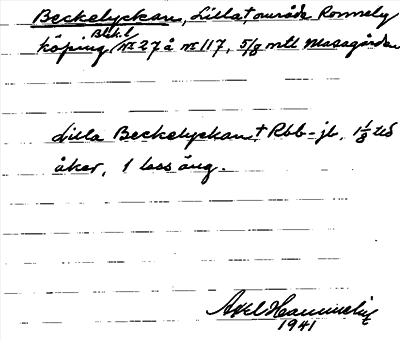 Beckelyckan, Lilla†, område Ronneby
köping Blek.l. nr 27 å nr 117, 5/8 mtl Masagården
Lilla Beckelyckan † Rbb-jb. 1 1/8 tld
åker, 1 lass äng.
Axel Hammelin
1941